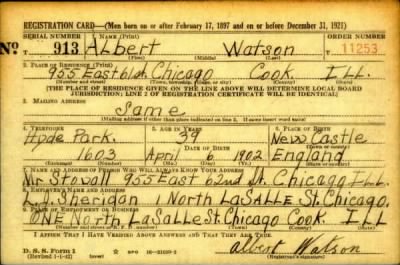 REGISTRATION CARD—(Men born on or after February 17, 1897 and on or before December 31, 1921)
SERIAL NUMBER 1. NAME (Print) ORDER NUMBER
No. 913 Albert Watson 11253
(First) (Middle) (Last)
2. PLACE OF RESIDENCE (Print)
955 East 61 st. Chicago Cook. ILL.
(Number and street) (Town, township, village, or city) (County) (State)
[THE PLACE OF RESIDENCE GIVEN ON THE LINE ABOVE WILL DETERMINE LOCAL BOARD
JURISDICTION; LINE 2 OF REGISTRATION CERTIFICATE WILL BE IDENTICAL]
3. MAILING ADDRESS
Same.
(Mailing address if other than place indicated on line 2. If same insert word same)
4. TELEPHONE 5. AGE IN YEARS 6. PLACE OF BIRTH
Hyde Park. 39 New Castle
DATE OF BIRTH
1603 April 1902 England
(Exchange) (Number) (Mo.) (Day) (Yr.)
7. NAME AND ADDRESS OF PERSON WHO WILL ALWAYS KNOW YOUR ADDRESS
Mr Stovall 955 East 62nd St. Chicago ILL.
8. EMPLOYER'S NAME AND ADDRESS
L.J. Sheridan 1 North LaSALLE St. Chicago,
9. PLACE OF EMPLOYMENT OR BUSINESS
ONE North LaSalle St. Chicago Cook. ILL
I AFFIRM THAT I HAVE VERIFIED ABOVE ANSWERS AND THAT THEY ARE TRUE.
D. S. S. Form 1 Albert Watson
(Revised 1-1-42) (Registrant's signature)